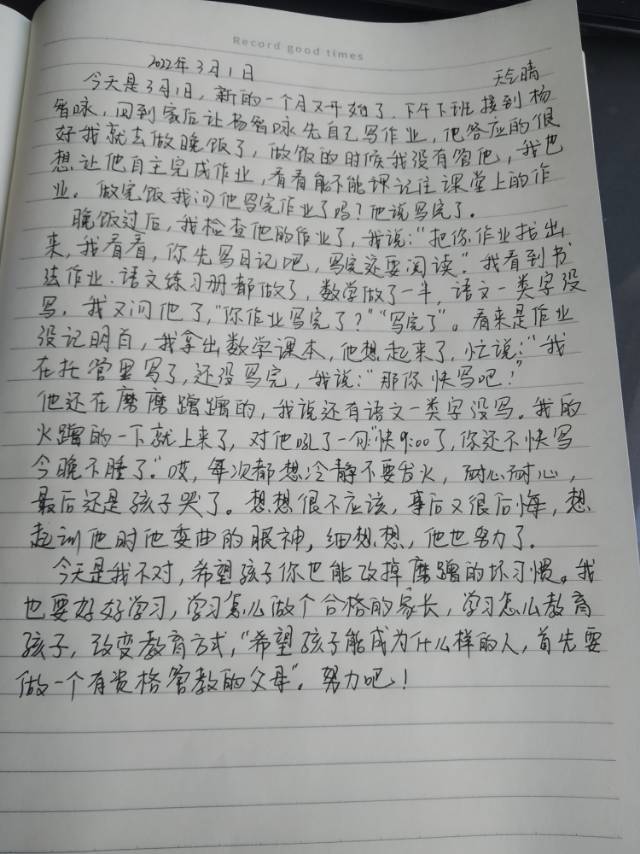 Record good times
2022年3月1日 天气晴
今天是3月1日，新的一个月又开始了，下午下班接到杨
智咏，回到家后让杨智咏先自己写作业，他答应的很
好我就去做晚饭了，做饭的时候我没有管他，我也
想让他自主完成作业，看看能不能课记住课堂上的作
业。做完饭我问他写完作业了吗？他说写完了。
晚饭过后，我检查他的作业了，我说：“把你作业找出
来，我看看，你先写日记吧，写完还要阅读”。我看到书
法作业，语文练习册都做了，数学做了一半，语文一类字没
写，我又问他了，“你作业写完了？”“写完了”。看来是作业
没记明白，我拿出数学课本，他想起来了，忙说：“我
在托管里写了，还没写完，我说：“那你快写吧！”
他还在磨磨蹭蹭的，我说还有语文一类字没写。我的
火蹭的一下就上来了，对他吼了一句“快9:00了，你还不快写
今晚不睡了”。哎，每次都想冷静不要发火，耐心耐心，
最后还是孩子哭了。想想很不应该，事后又很后悔，想
起训他时他委曲的眼神，细想想，他也努力了。
今天是我不对，希望孩子你也能改掉磨蹭的坏习惯。我
也要好好学习，学习怎么做个合格的家长，学习怎么教育
孩子，改变教育方式，“希望孩子能成为什么样的人，首先要
做一个有资格管教的父母”。努力吧！